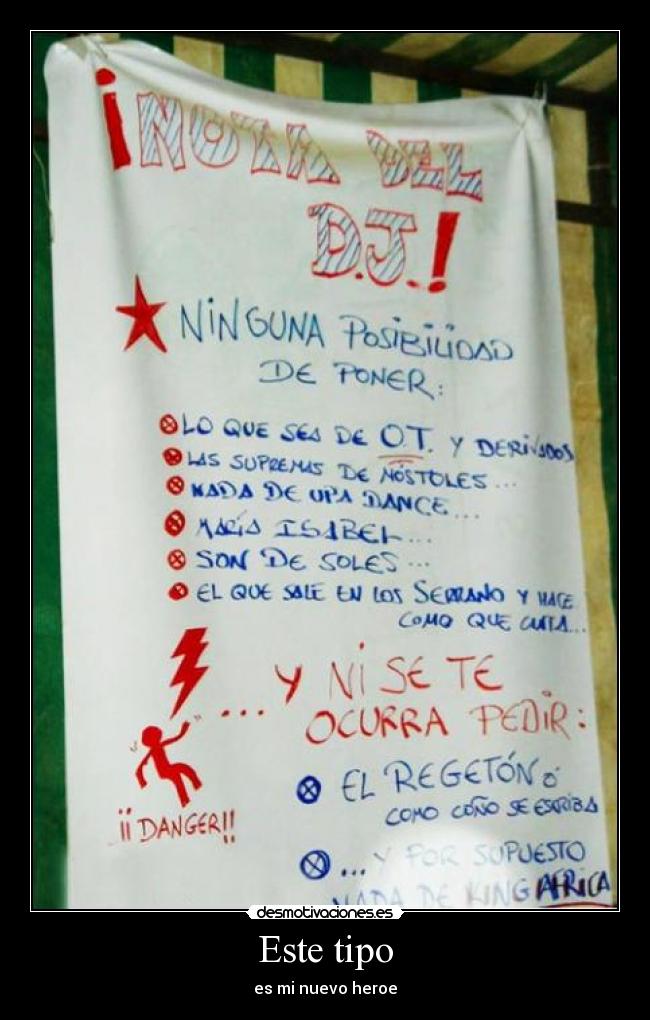 ¡NOTA DEL
D.J.!
NINGUNA POSIBILIDAD
DE PONER:
LO QUE SEA DE O.T. Y DERIVADOS
LAS SUPREMAS DE MÓSTOLES...
NADA DE UPA DANCE...
MARÍA ISABEL...
SON DE SOLES...
EL QUE SALE EN LOS SERRANO Y HACE
COMO QUE CANTA...
...Y NI SE TE
OCURRA PEDIR:
EL REGETÓN Ó
COMO COÑO SE ESCRIBA
¡¡DANGER!!
...Y POR SUPUESTO
NADA DE KING AFRICA
desmotivaciones.es
Este tipo
es mi nuevo heroe